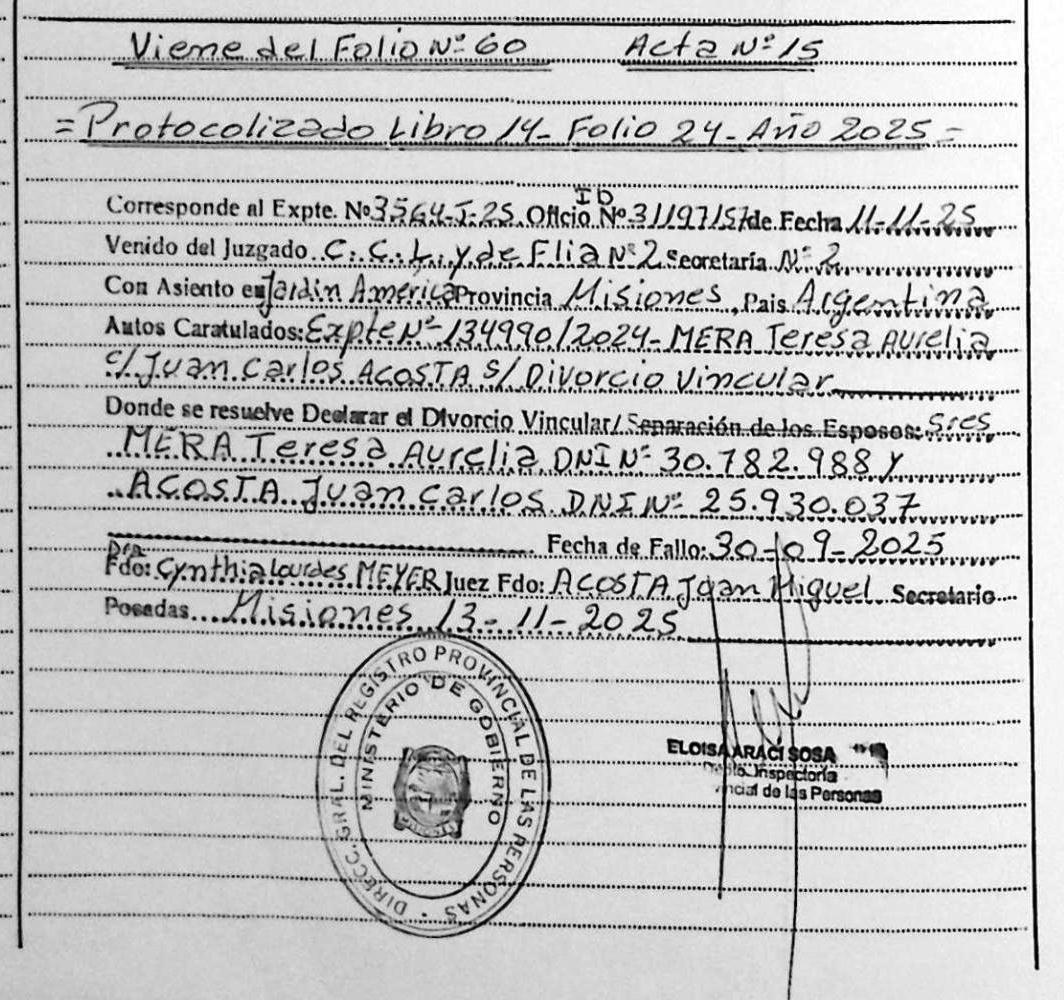 Viene del Folio Nº 60 Acta Nº 15
= Protocolizado Libro 14- Folio 24- Año 2025 =
ID
Corresponde al Expte. Nº 3564-J-25. Oficio Nº 31197157 de Fecha 11-11-25
Venido del Juzgado C. C. L. y de Flia Nº 2 Secretaría Nº 2
Con Asiento en Jardín América Provincia Misiones, Pais Argentina
Autos Caratulados: Expte Nº 134990/2024- MERA Teresa Aurelia
c/ Juan Carlos ACOSTA s/ Divorcio Vincular
Donde se resuelve Declarar el Divorcio Vincular/ Separación de los Esposos: Sres
MERA Teresa Aurelia DNI Nº 30.782.988 y
ACOSTA Juan Carlos DNI Nº 25.930.037
Fecha de Fallo: 30-09-2025
Dra
Fdo: Cynthia Lourdes MEYER Juez Fdo: ACOSTA Juan Miguel Secretario
Posadas Misiones 13-11-2025
DIRECC. GRAL. DEL REGISTRO PROVINCIAL DE LAS PERSONAS
MINISTERIO DE GOBIERNO
ELOISA ARACI SOSA
Inspectoría
de las Personas